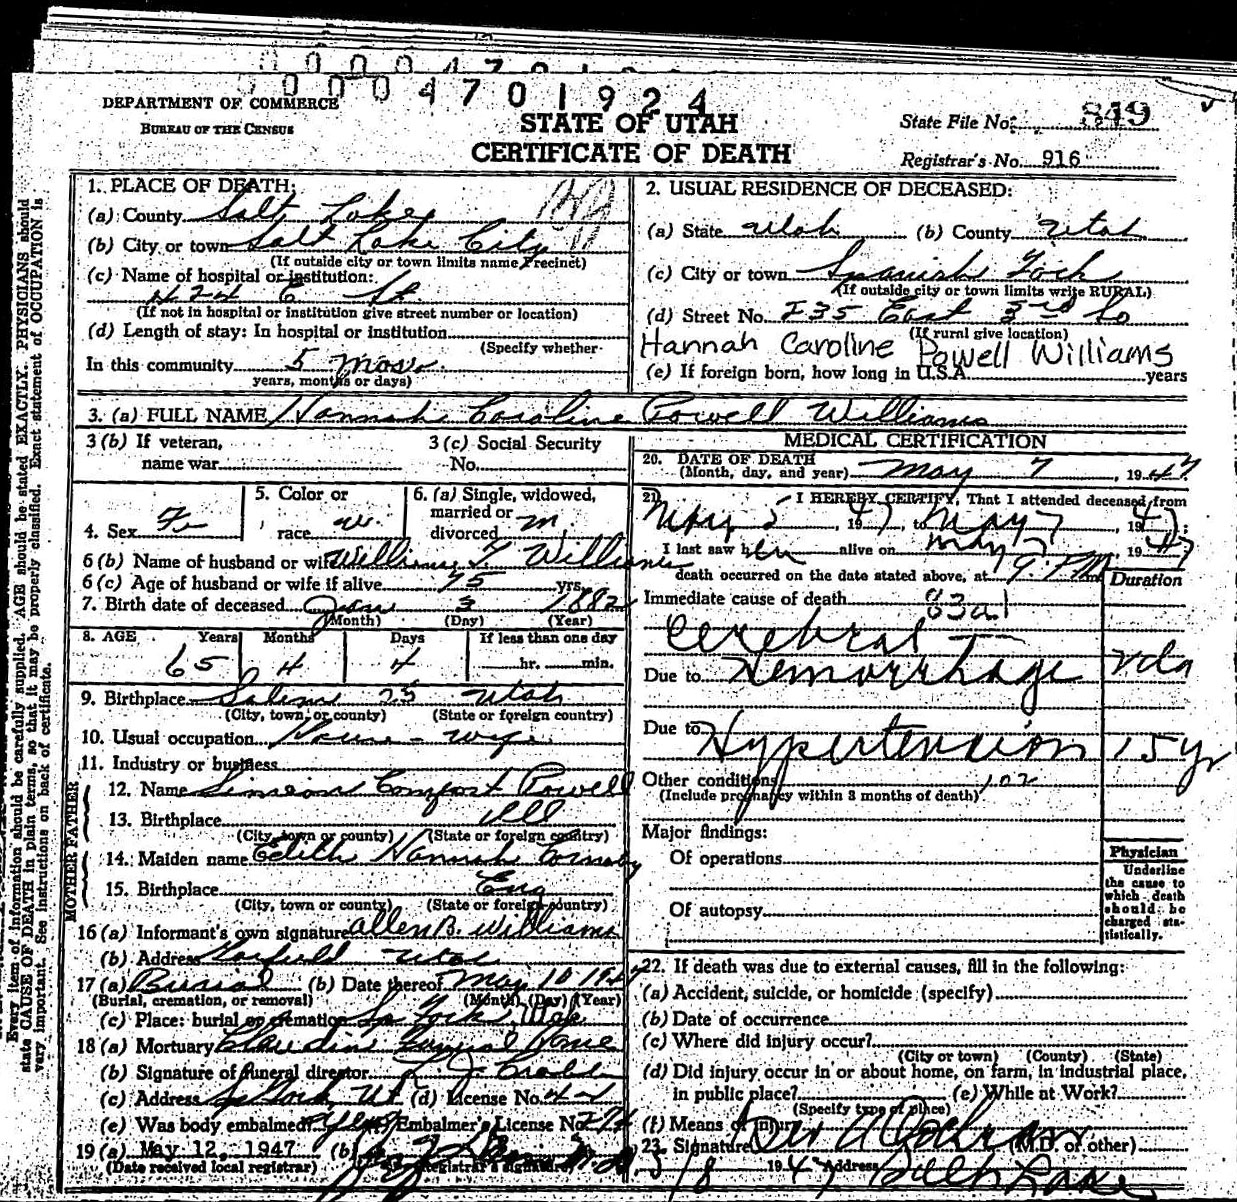 00004701924
DEPARTMENT OF COMMERCE
BUREAU OF THE CENSUS
STATE OF UTAH
CERTIFICATE OF DEATH
State File No. 849
Registrar's No. 916
1. PLACE OF DEATH:
(a) County Salt Lake
(b) City or town Salt Lake City
(If outside city or town limits name Precinct)
(c) Name of hospital or institution:
424 E St
(If not in hospital or institution give street number or location)
(d) Length of stay: In hospital or institution
(Specify whether
In this community 5 Mos.
years, months or days)
2. USUAL RESIDENCE OF DECEASED:
(a) State Utah (b) County Utah
(c) City or town Spanish Fork
(If outside city or town limits write RURAL)
(d) Street No. 235 East 3rd So
(If rural give location)
Hannah Caroline Powell Williams
(e) If foreign born, how long in U.S.A. years
3. (a) FULL NAME Hannah Caroline Powell Williams
3 (b) If veteran,
name war
3 (c) Social Security
No.
4. Sex Fe
5. Color or
race w.
6. (a) Single, widowed,
married or
divorced m.
6 (b) Name of husband or wife William Williams
6 (c) Age of husband or wife if alive 75 yrs.
7. Birth date of deceased Jan 3 1882
(Month) (Day) (Year)
8. AGE Years Months Days If less than one day
65 4 4 hr. min.
9. Birthplace Salem Utah
(City, town, or county) (State or foreign country)
10. Usual occupation House-wife
11. Industry or business
FATHER
12. Name Simeon Comfort Powell
13. Birthplace Ill
(City, town or county) (State or foreign country)
MOTHER
14. Maiden name Edith Hannah Cornaby
15. Birthplace Eng
(City, town or county) (State or foreign country)
16 (a) Informant's own signature Allen B. Williams
(b) Address Garfield Utah
17 (a) Burial (b) Date thereof May 10 1947
(Burial, cremation, or removal) (Month) (Day) (Year)
(c) Place: burial or cremation Sp Fork, Utah
18 (a) Mortuary Claudin Funeral Home
(b) Signature of funeral director
(c) Address Sp Fork Ut (d) License No.
(e) Was body embalmed? yes Embalmer's License No.
19 (a) May 12, 1947 (b)
(Date received local registrar) Registrar's signature
MEDICAL CERTIFICATION
20. DATE OF DEATH
(Month, day, and year) May 7, 1947
21. I HEREBY CERTIFY, That I attended deceased from
May 5, 1947, to May 7, 1947;
I last saw her alive on May 7, 1947
death occurred on the date stated above, at 9. P.M.
Duration
Immediate cause of death 83a1
Cerebral
Due to Hemorrhage 2 da
Due to Hypertension 15 yr
Other conditions 102
(Include pregnancy within 3 months of death)
Major findings:
Of operations
Of autopsy
Physician
Underline
the cause to
which death
should be
charged sta-
tistically.
22. If death was due to external causes, fill in the following:
(a) Accident, suicide, or homicide (specify)
(b) Date of occurrence
(c) Where did injury occur?
(City or town) (County) (State)
(d) Did injury occur in or about home, on farm, in industrial place,
in public place? (e) While at Work?
(Specify type of place)
(f) Means of injury
23. Signature (M.D. or other)
5/8 1947 Address Salt Lake
Every item of information should be carefully supplied. AGE should be stated EXACTLY. PHYSICIANS should
state CAUSE OF DEATH in plain terms, so that it may be properly classified. Exact statement of OCCUPATION is
very important. See instructions on back of certificate.